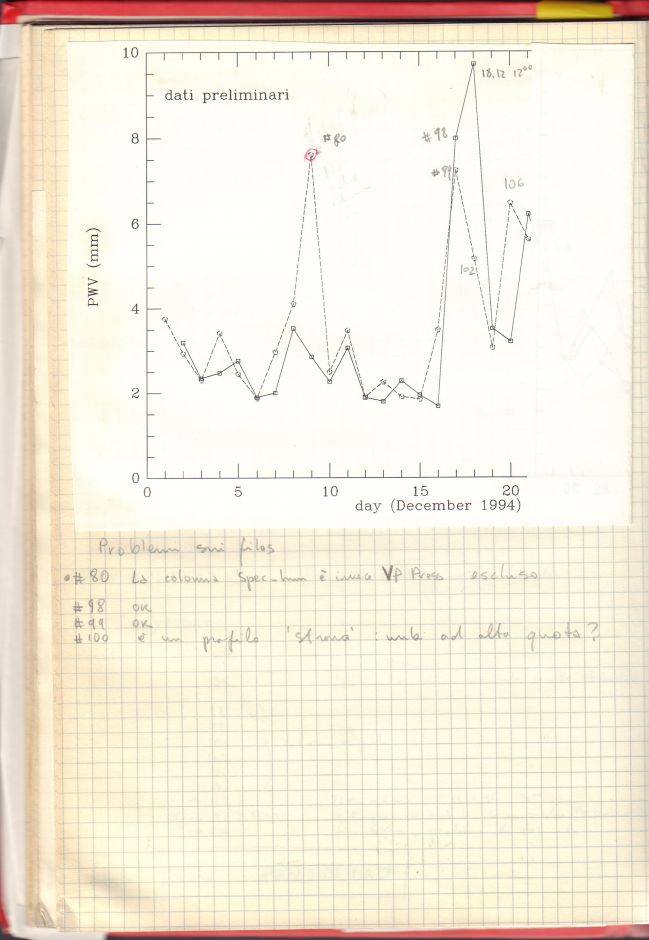 10
dati preliminari
18.12 12°°
# 80
# 98
8
# 99
106
6
PWV (mm)
102
4
2
0
0 5 10 15 20
day (December 1994)
Problemi sui files
# 80 La colonna Spec-hum è invece VP Press escluso
# 98 OK
# 99 OK
# 100 è un profilo 'strano' : nubi ad alta quota?